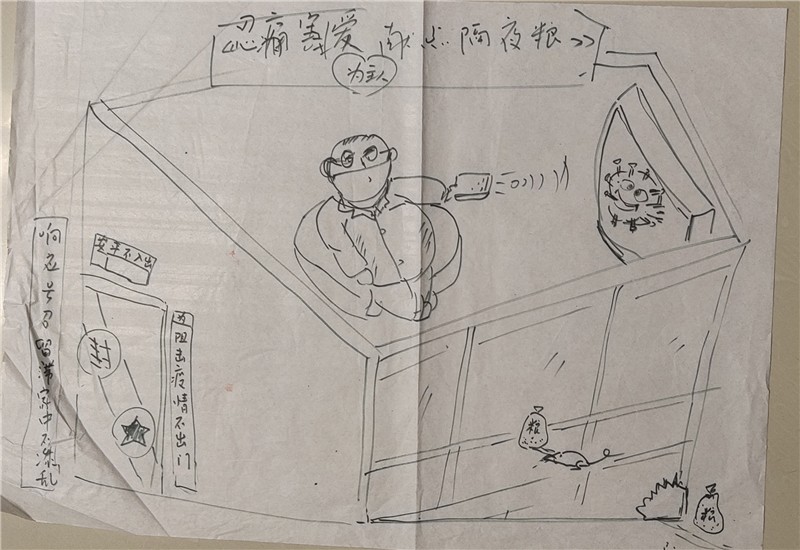 忍痛割爱 献点隔夜粮
为主人
响应号召留滞家中不添乱
安平不入出
为阻击疫情不出门
粮
粮